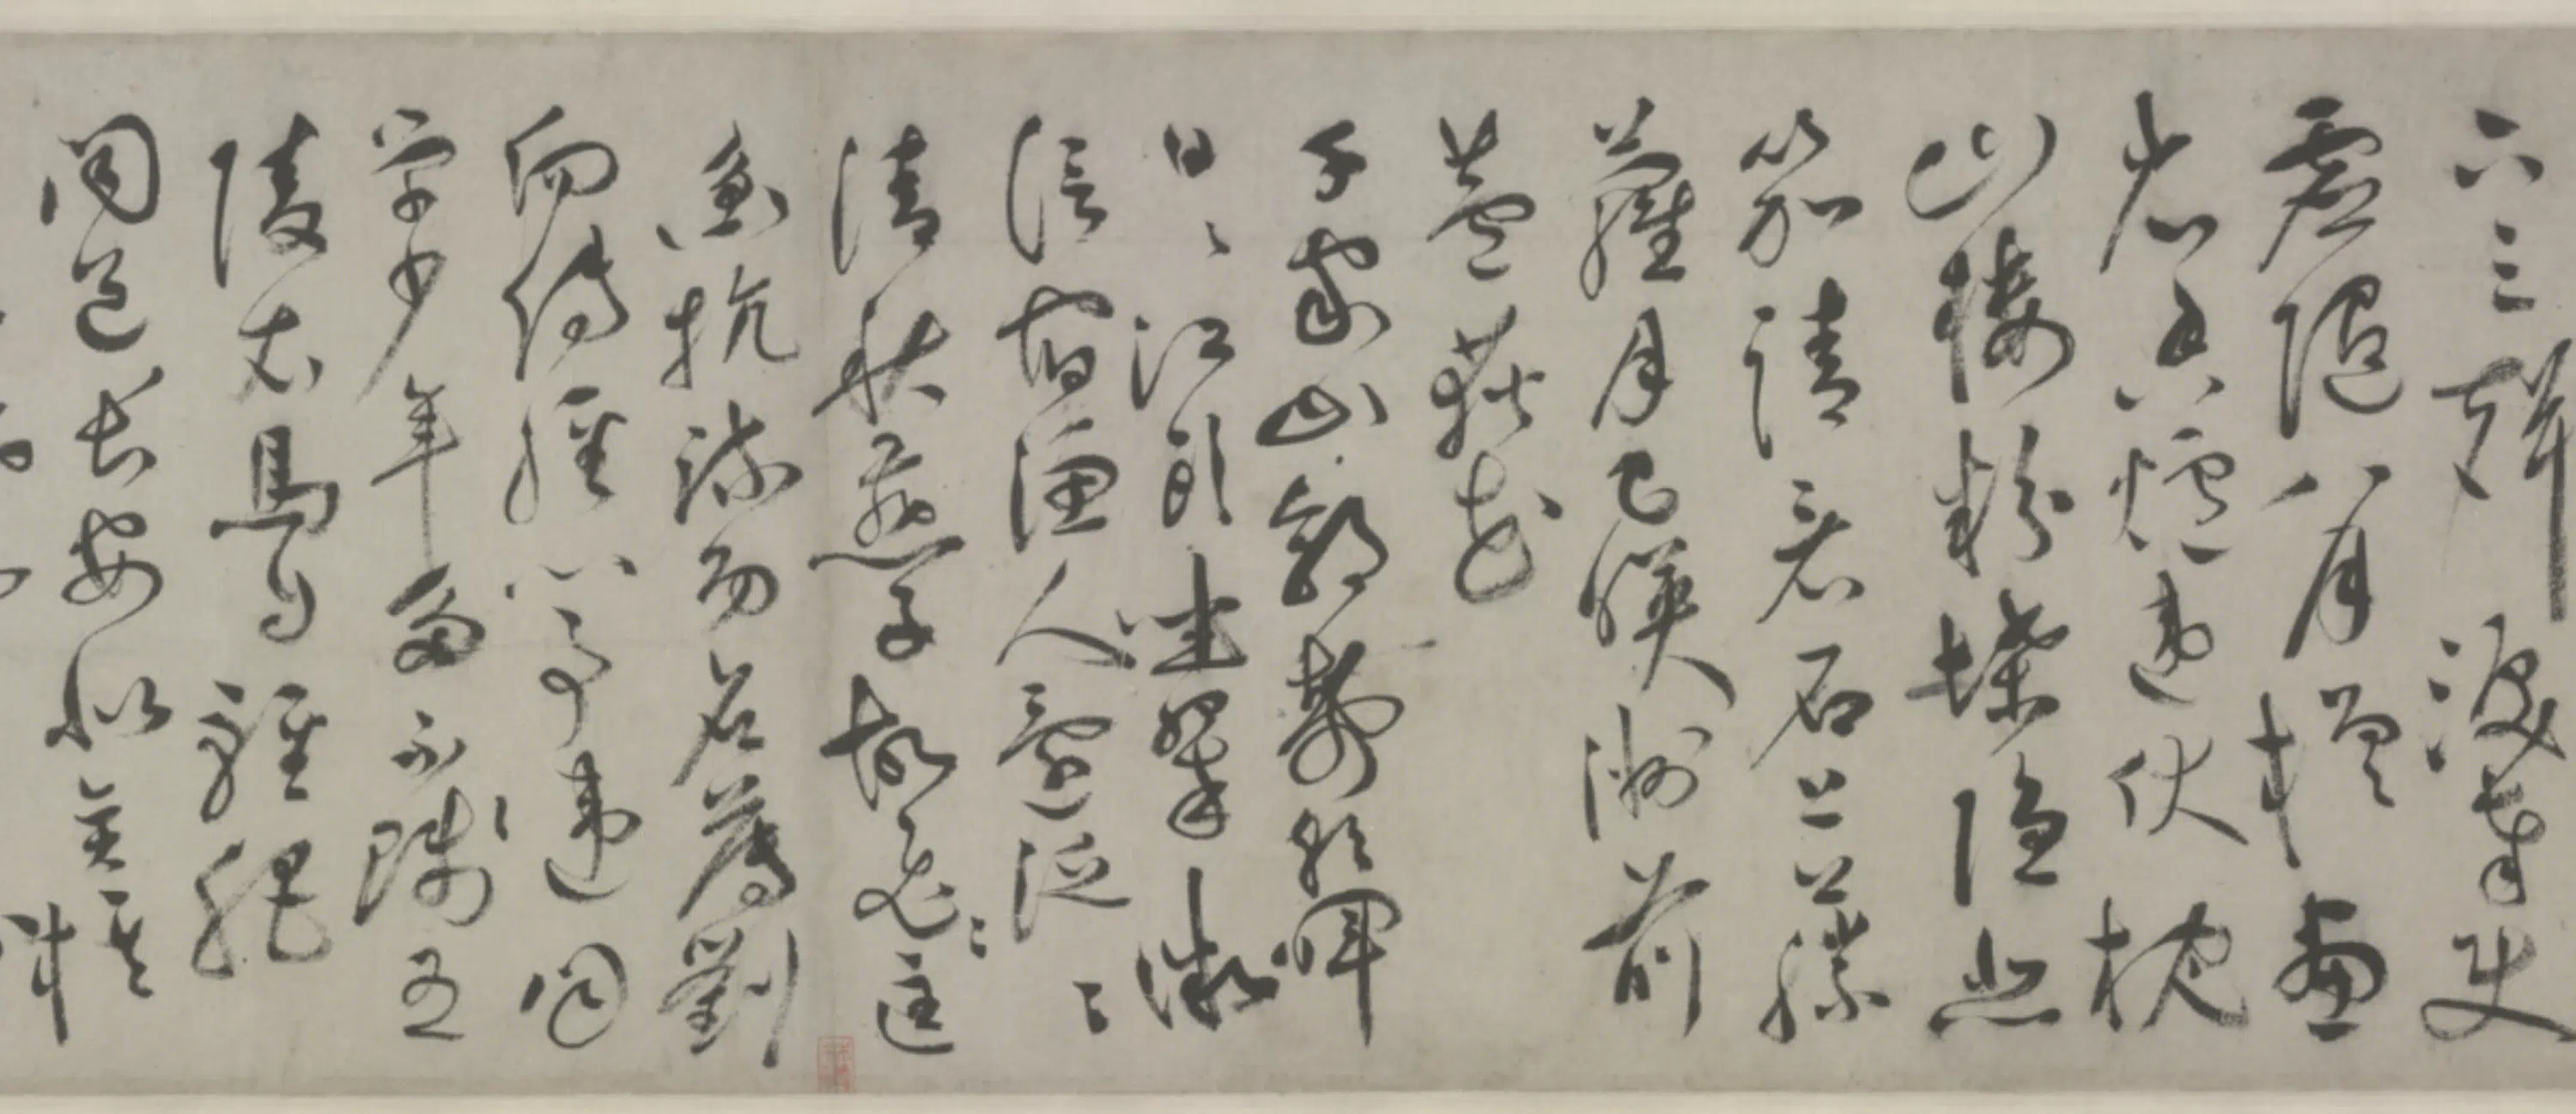 下三聲淚奉使
虛隨八月槎畫
省香爐違伏枕
山樓粉堞隱悲
笳請看石上藤
蘿月已暎洲前
蘆荻花
千家山郭靜朝暉
日〻江頭坐翠微
信宿漁人還泛〻
清秋燕子故飛〻匡
衡抗疏功名薄劉
向傳經心事違同
學少年多不賤五
陵衣馬自輕肥
聞道長安似奕棋